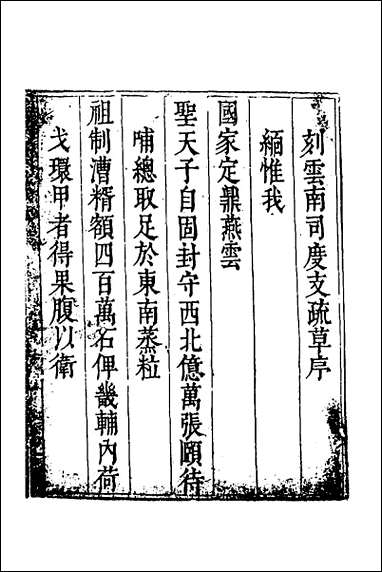 刻雲南司度支疏草序
緬惟我
國家定鼎燕雲
聖天子自固封守西北億萬張頤待
哺總取足於東南蒸粒
祖制漕糈額四百萬石俾畿輔內荷
戈環甲者得果腹以衛